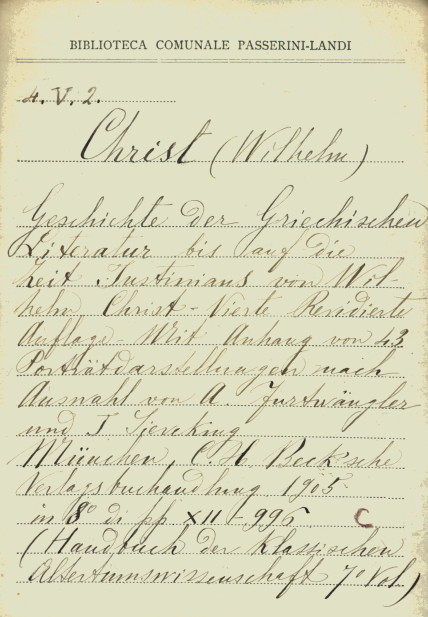 BIBLIOTECA COMUNALE PASSERINI-LANDI
4. V. 2.
Christ (Wilhelm)
Geschichte der Griechischen
Literatur bis auf die
Zeit Justinians von Wil
helm Christ - Vierte Revidierte
Auflage - Mit Anhang von 43
Porträtdarstellungen nach
Auswahl von A. Furtwängler
und J Sieveking
München, C. H Beck'sche
Verlagsbuchandlung 1905
in 8° di pp XII - 996 C
(Handbuch der Klassischen
Altertumswissenschaft 7° Vol)